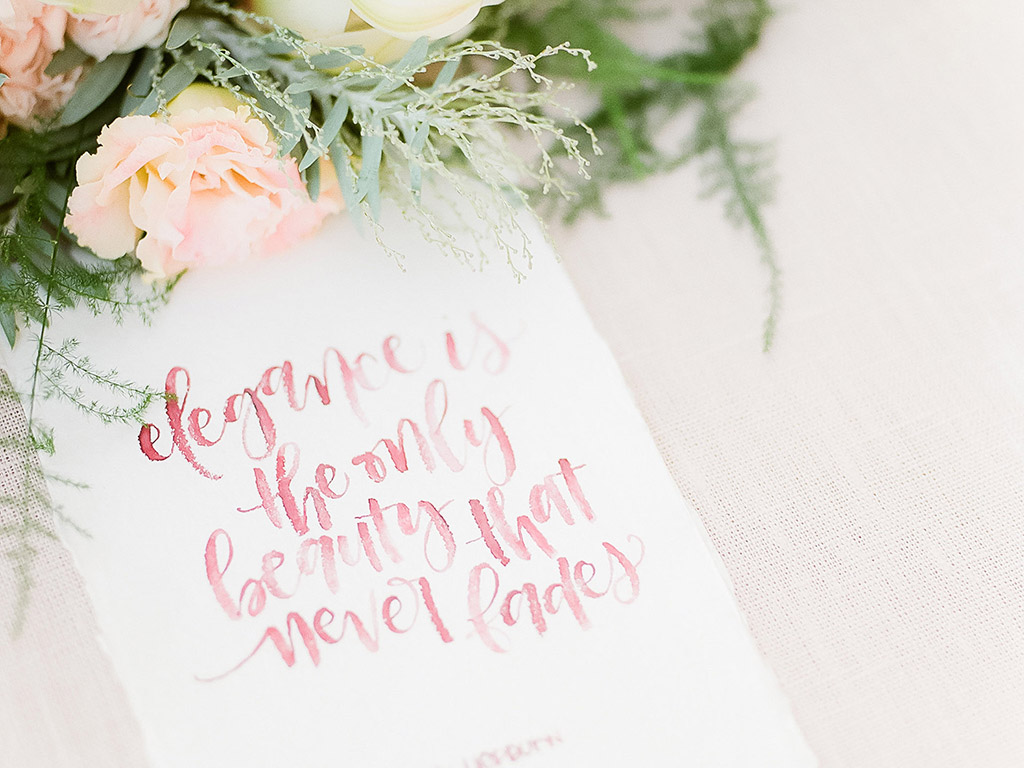 elegance is
the only
beauty that
never fades